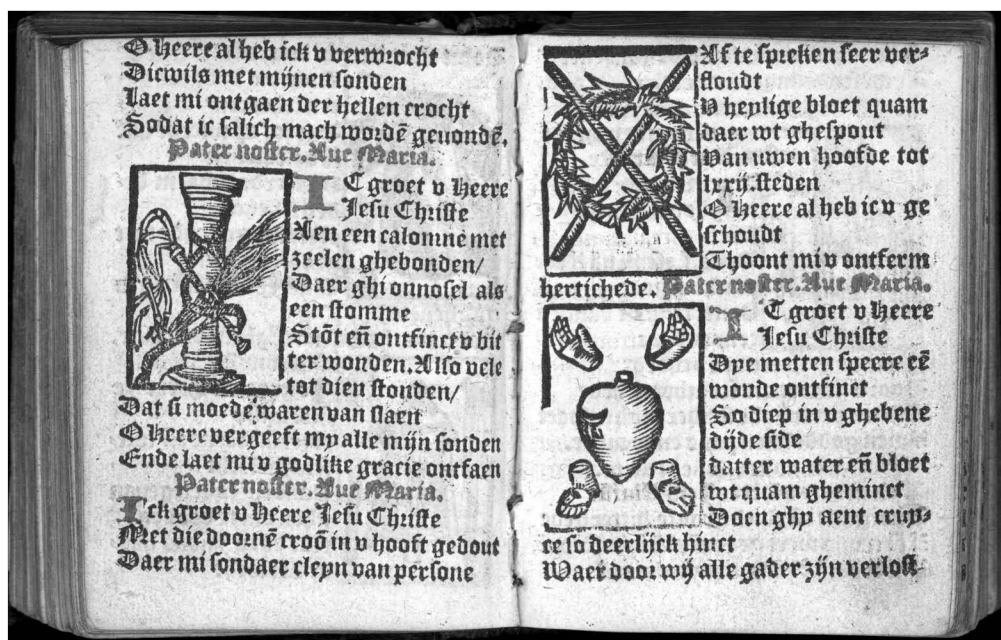 O Heere al heb ick v verwrocht
Dicwils met mijnen sonden
Laet mi ontgaen der hellen crocht
Sodat ic salich mach wordē geuondē.
Pater noster. Aue Maria.
IC groet v Heere
Jesu Christe
Aen een calomne met
zeelen ghebonden/
Daer ghi onnosel als
een stomme
Stōt eñ ontfinct v bit
ter wonden. Also vele
tot dien stonden/
Dat si moede waren van slaen
O Heere vergeeft my alle mijn sonden
Ende laet mi v godlike gracie ontfaen
Pater noster. Aue Maria.
Ick groet v Heere Jesu Christe
Met die doornē croō in v hooft gedout
Daer mi sondaer cleyn van persone
Af te spreken seer ver⸗
floudt
V heylige bloet quam
daer wt ghespout
Van uwen hoofde tot
lxxij. steden
O Heere al heb ic v ge
schoudt
Thoont mi v ontferm
hertichede. Pater noster. Aue Maria.
IC groet v Heere
Jesu Christe
Dye metten speere eē
wonde ontfinct
So diep in v ghebene
dijde side
datter water eñ bloet
wt quam gheminct
Doen ghy aent cruy⸗
ce so deerlijck hinct
Waer door wij alle gader zijn verlost